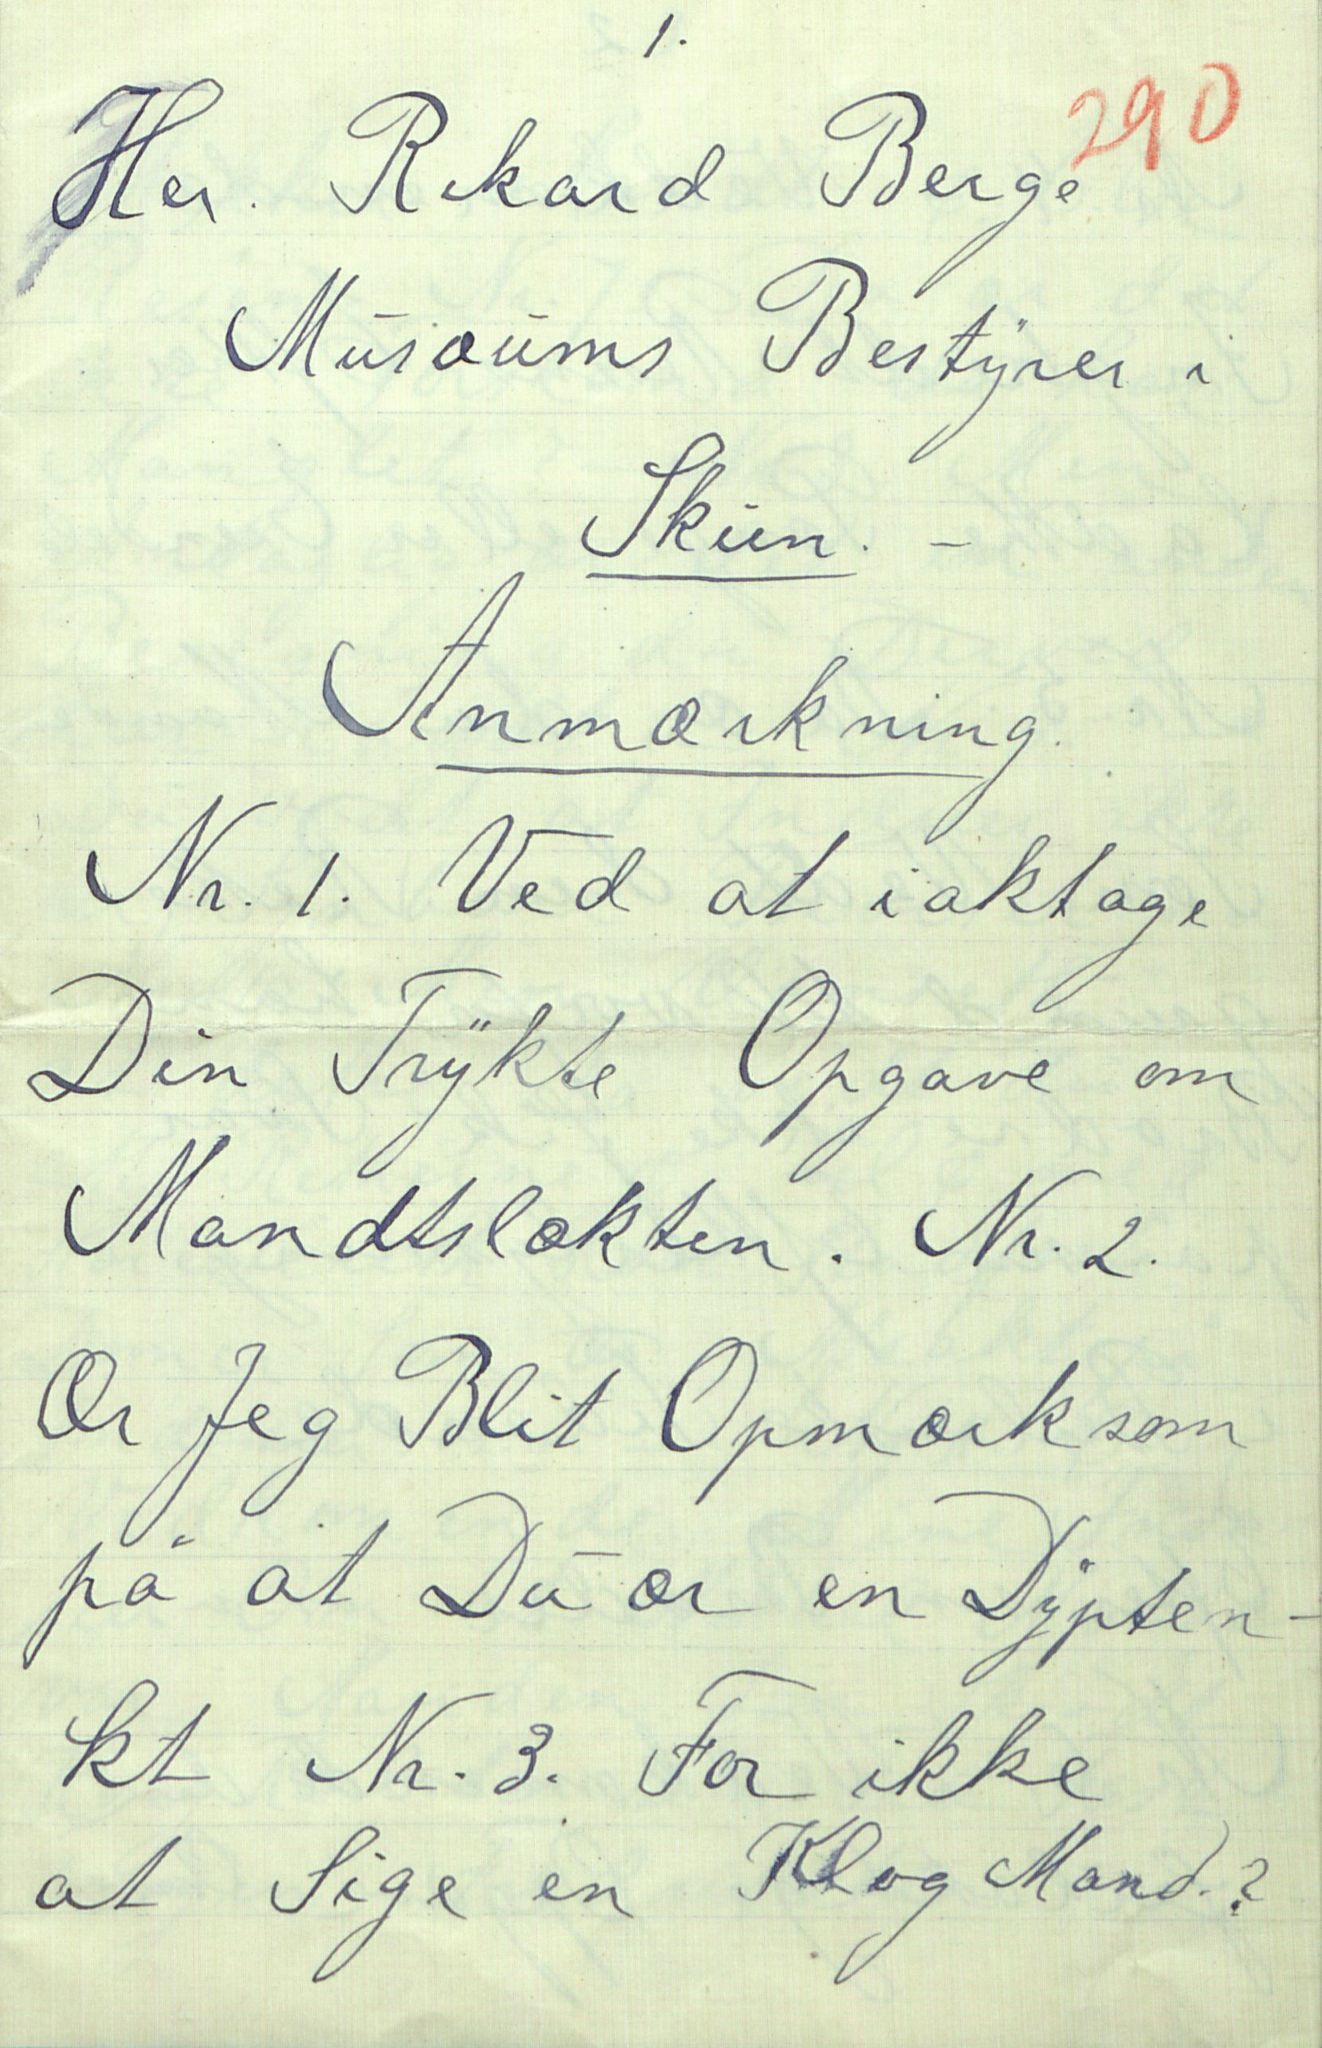 1.
290
Her. Rikard Berge
Musæums Bestyrer i
Skien. –
Anmærkning.
Nr. 1. Ved at iaktage
Din Trykte Opgave om
Mandtslækten. Nr. 2.
Ær Jeg Blit Opmærksom
på at Du ær en Dypten-
kt Nr. 3. For ikke
at Sige en Klog Mand.?